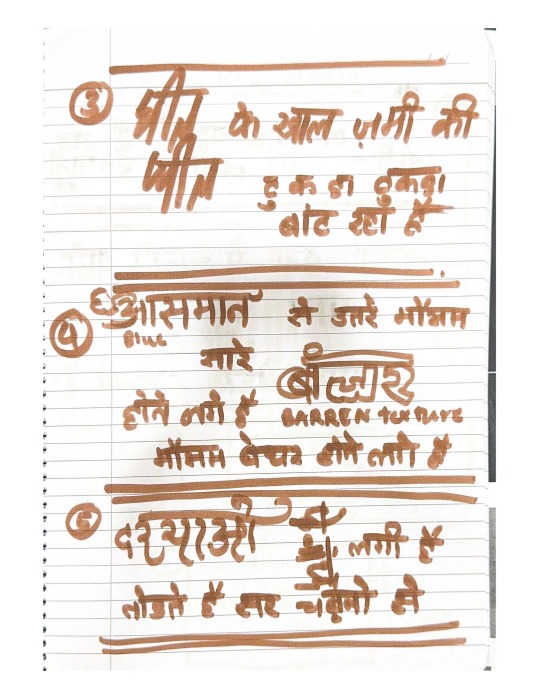 3 छील के खाल ज़मी की
छील टुकडा टुकडा
बांट रहा है
4 आसमान से उतरे मौसम
BLUE
सारे बंजार
होने लगे है BARREN TEXTURE
मौसम बेघर होने लगे है
5 दरयाओ पे लगी है
तोडते है सर चट्टानो से